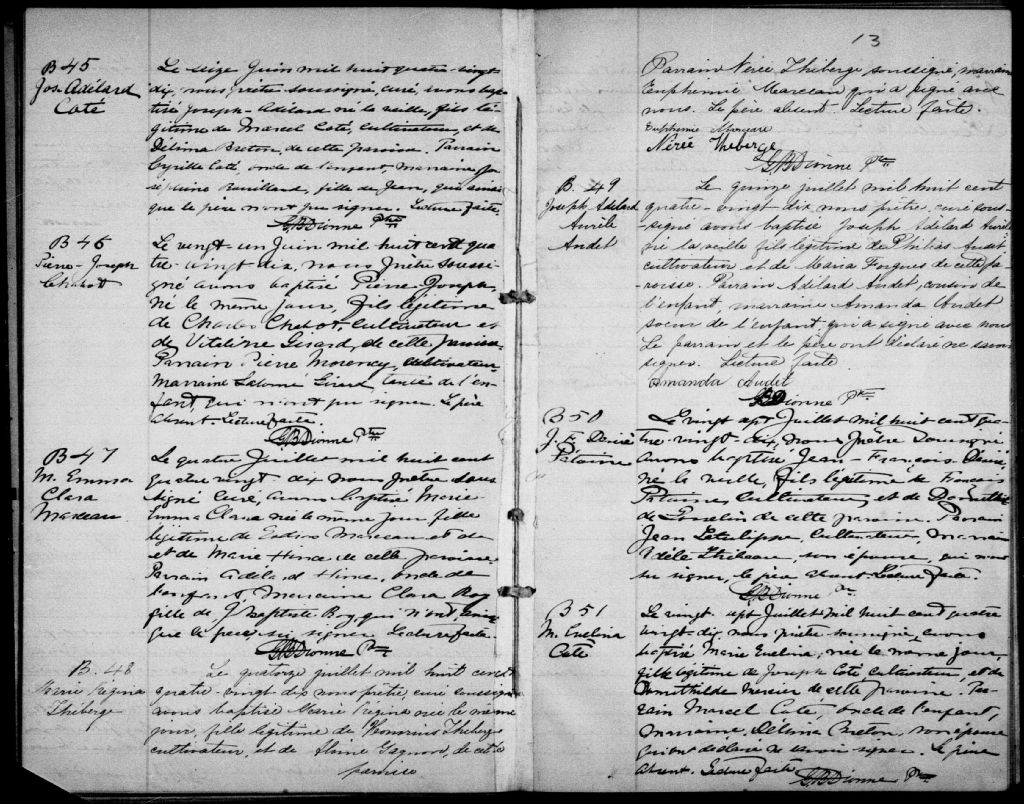 B 45
Jos Adélard
Coté
Le seize Juin mil huit quatre-vingt-
dix, nous prêtre soussigné, curé, avons bap-
tisé Joseph-Adélard né la veille, fils lé-
gitime de Marcel Coté, Cultivateur, et de
Délima Breton, de cette paroisse. Parrain
Cyrille Coté, oncle de l'enfant, marraine Jo-
séphine Rouillard, fille de Jean, qui ainsi
que le père n'ont pu signer. Lecture faite.
GBDionne Ptre
B 46
Pierre-Joseph
Chabot
Le vingt-un Juin mil huit cent qua-
tre-vingt dix, nous prêtre soussi-
gné avons baptisé Pierre Joseph,
né le même jour, fils légitime
de Charles Chabot, Cultivateur et
de Vitaline Girard, de cette paroisse.
Parrain Pierre Morency, cultivateur
Marraine Salomé Girard, tante de l'en-
fant, qui n'ont pu signer. Le père
absent. Lecture faite.
GBDionne Ptre
B 47
M. Emma
Clara
Marceau
Le quatre Juillet mil huit cent
quatre vingt dix nous prêtre sous
signé Curé, avons baptisé Marie
Emma Clara née le même jour fille
légitime de Marceau et de
et de Marie de cette paroisse
Parrain Adélard oncle de
l'enfant, Marraine Clara Roy
fille de J. baptiste Roy, qui n'ont, ainsi
que le père, su signer. Lecture faite.
GBDionne Ptre
B. 48
Marie Regina
Théberge
Le quatorze juillet mil huit cent
quatre-vingt-dix nous prêtre, curé soussigné
avons baptisé Marie Regina née le même
jour, fille légitime de Honorius Théberge
cultivateur, et de Gagnon, de cette
paroisse
13
Parrain Nérée Théberge soussigné, marraine
Euphémie Marceau qui a signé avec
nous. Le père absent. Lecture faite.
Euphemie Morceau
Nérée Theberge
GBDionne Ptre
B 49
Joseph Adélard
Aurèle
Audet
Le quinze juillet mil huit cent
quatre-vingt dix nous prêtre, curé sous-
signé avons baptisé Joseph Adélard Aurèle
né la veille fils légitime de Philias Audet
cultivateur et de Maria Forgues de cette pa-
roisse. Parrain Adélard Audet, cousin de
l'enfant, marraine Amanda Audet
soeur de l'enfant qui a signé avec nous
Le parrain et le père ont déclaré ne savoir
signer. Lecture faite
Amanda Audet
GBDionne Ptre
B 50
J. F. Désiré
Patoine
Le vingt sept Juillet mil huit cent qua-
tre-vingt-dix, nous prêtre soussigné
avons baptisé Jean-François Désiré,
né la veille, fils légitime de François
Patoine, Cultivateur, et de
de Gosselin de cette paroisse. Parrain
Jean Cultivateur, Marraine
Adèle Thibeau, son épouse, qui n'ont
su signer, le père absent. Lecture faite.
GBDionne Ptre
B 51
M. Evelina
Coté
Le vingt-sept Juillet mil huit cent quatre
vingt-dix, nous prêtre soussigné, avons
baptisé Marie Evelina, née le même jour,
fille légitime de Joseph Coté, Cultivateur, et de
Domithilde Mercier de cette paroisse. Par-
rain Marcel Coté, oncle de l'enfant,
Marraine, Délima Breton, son épouse
qui ont déclaré ne savoir signer. Le père
absent. Lecture faite
GBDionne Ptre